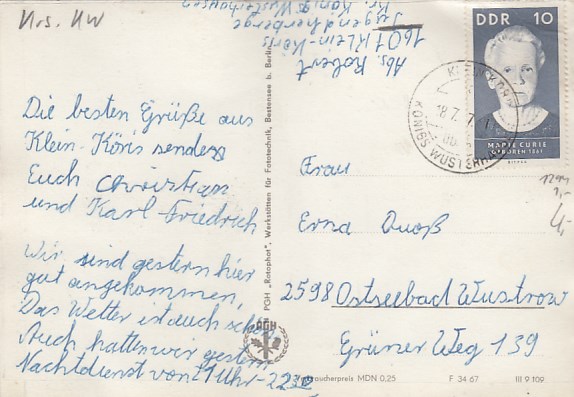 Krs. KW
Abs. Robert
Jugendherberge
1601 Klein-Köris
Kr. Königs Wusterhausen
DDR 10
MARIE CURIE
GEBOREN 1867
KÖNIGS WUSTERHA
Die besten Grüße aus
Klein-Köris senden
Euch Christian
und Karl-Friedrich
Wir sind gestern hier
gut angekommen,
Das Wetter ist auch schön
Auch hatten wir gestern
Nachtdienst von 21 Uhr-22
PGH „Rotophot“, Werkstätten für Fototechnik, Bestensee b. Berlin
PGH
Frau
Erna
2598 Ostseebad Wustrow
Grüner Weg 139
1,-
4,-
Verbraucherpreis MDN 0,25 F 34 67 III 9 109